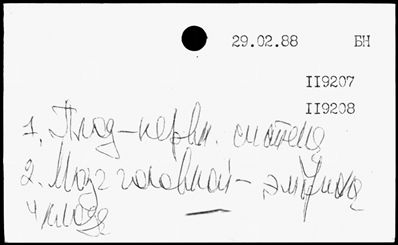 29.02.88 БН
II9207
II9208
1. Плод-нервн. система
2. Мозг головной-эмбриология